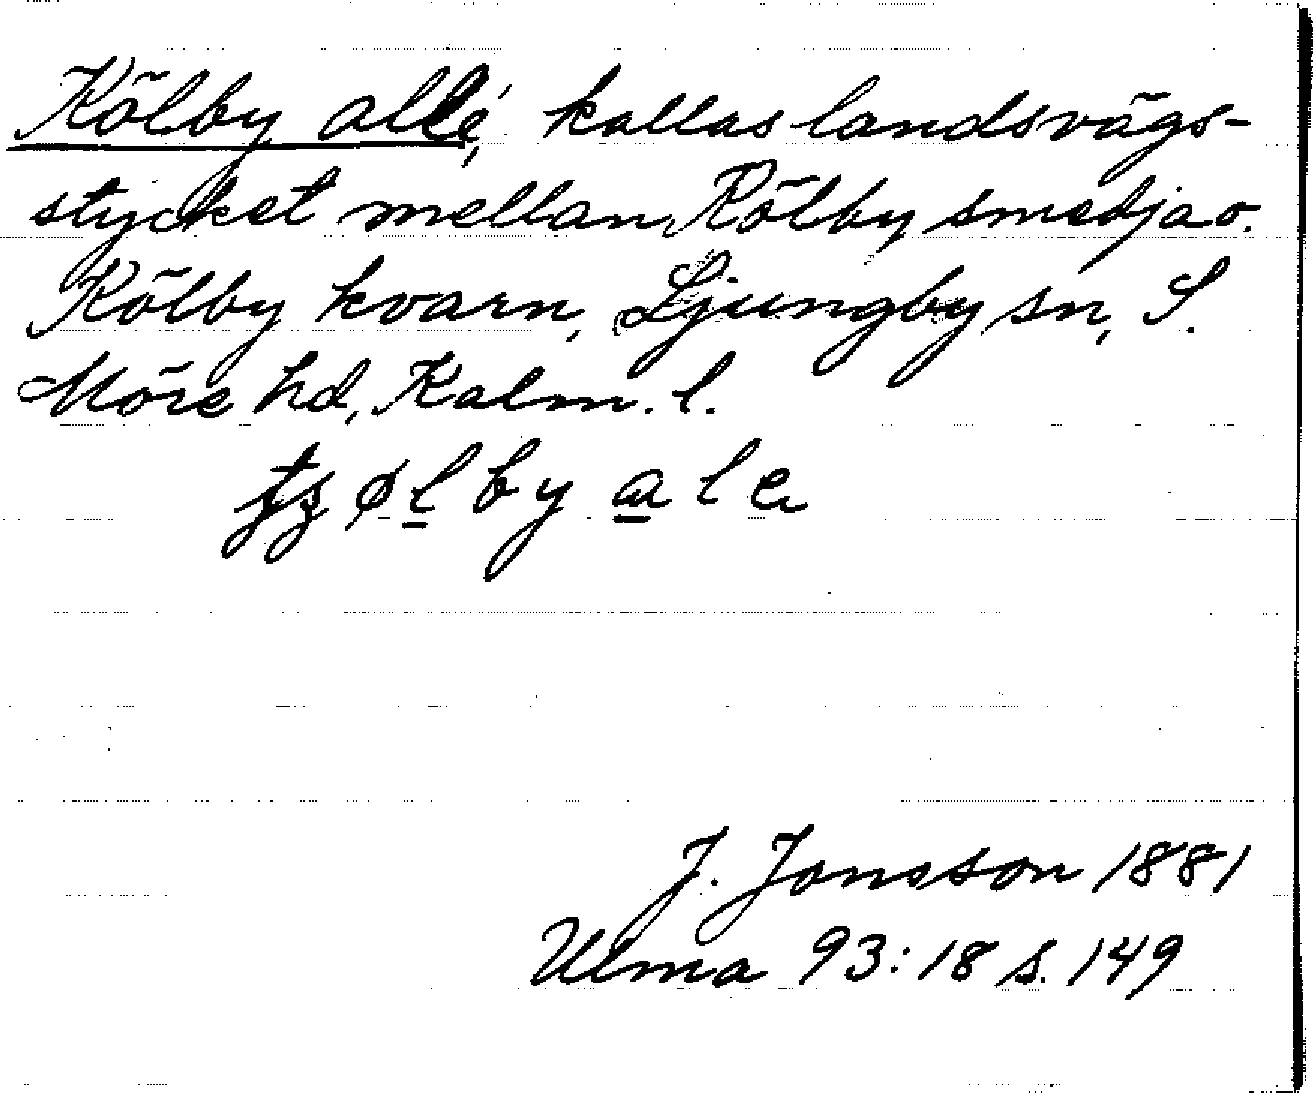 Kölby allé, kallas landsvägs-
stycket mellan Kölby smedja o.
Kölby kvarn, Ljungby sn, S.
Möre hd, Kalm. l.
ø l b y a l e
J. Jonsson 1881
Ulma 93:18 s. 149